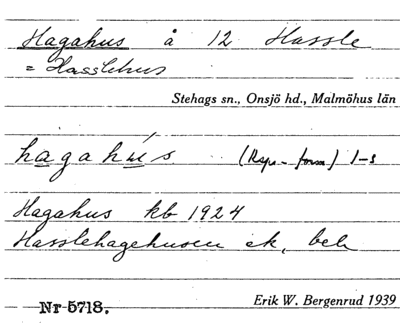 Hagahus å 12 Hassle
= Hasslehus
Stehags sn., Onsjö hd., Malmöhus län
hagahús (Rspr-form) 1-s
Hagahus kb 1924
Hasslehagehusen ek, beb
Nr 5718. Erik W. Bergenrud 1939